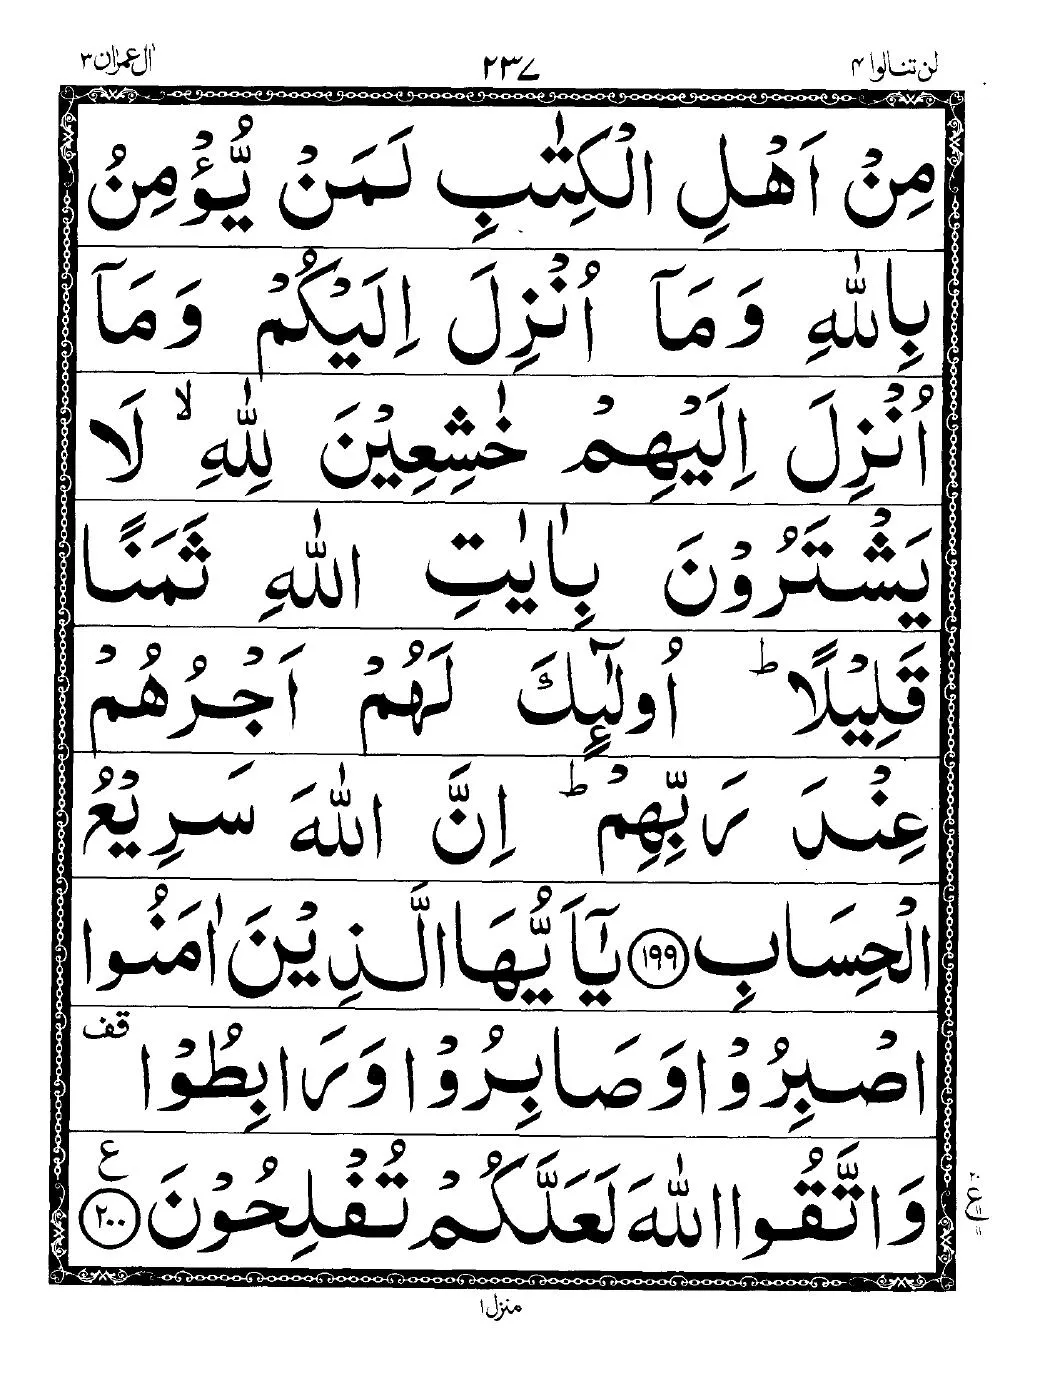 لن تنالوا ۴ ۲۳۷ اٰل عمرٰن ۳
مِنْ اَهْلِ الْكِتٰبِ لَمَنْ يُّؤْمِنُ
بِاللّٰهِ وَمَآ اُنْزِلَ اِلَيْكُمْ وَمَآ
اُنْزِلَ اِلَيْهِمْ خٰشِعِيْنَ لِلّٰهِ ۙ لَا
يَشْتَرُوْنَ بِاٰيٰتِ اللّٰهِ ثَمَنًا
قَلِيْلًا ؕ اُولٰٓئِكَ لَهُمْ اَجْرُهُمْ
عِنْدَ رَبِّهِمْ ؕ اِنَّ اللّٰهَ سَرِيْعُ
الْحِسَابِ ۱۹۹ يٰٓاَيُّهَا الَّذِيْنَ اٰمَنُوا
اصْبِرُوْا وَصَابِرُوْا وَرَابِطُوْا قف
وَاتَّقُوا اللّٰهَ لَعَلَّكُمْ تُفْلِحُوْنَ ۲۰۰ ع
۲۰
ع
۱۱
۱۱
منزل ۱